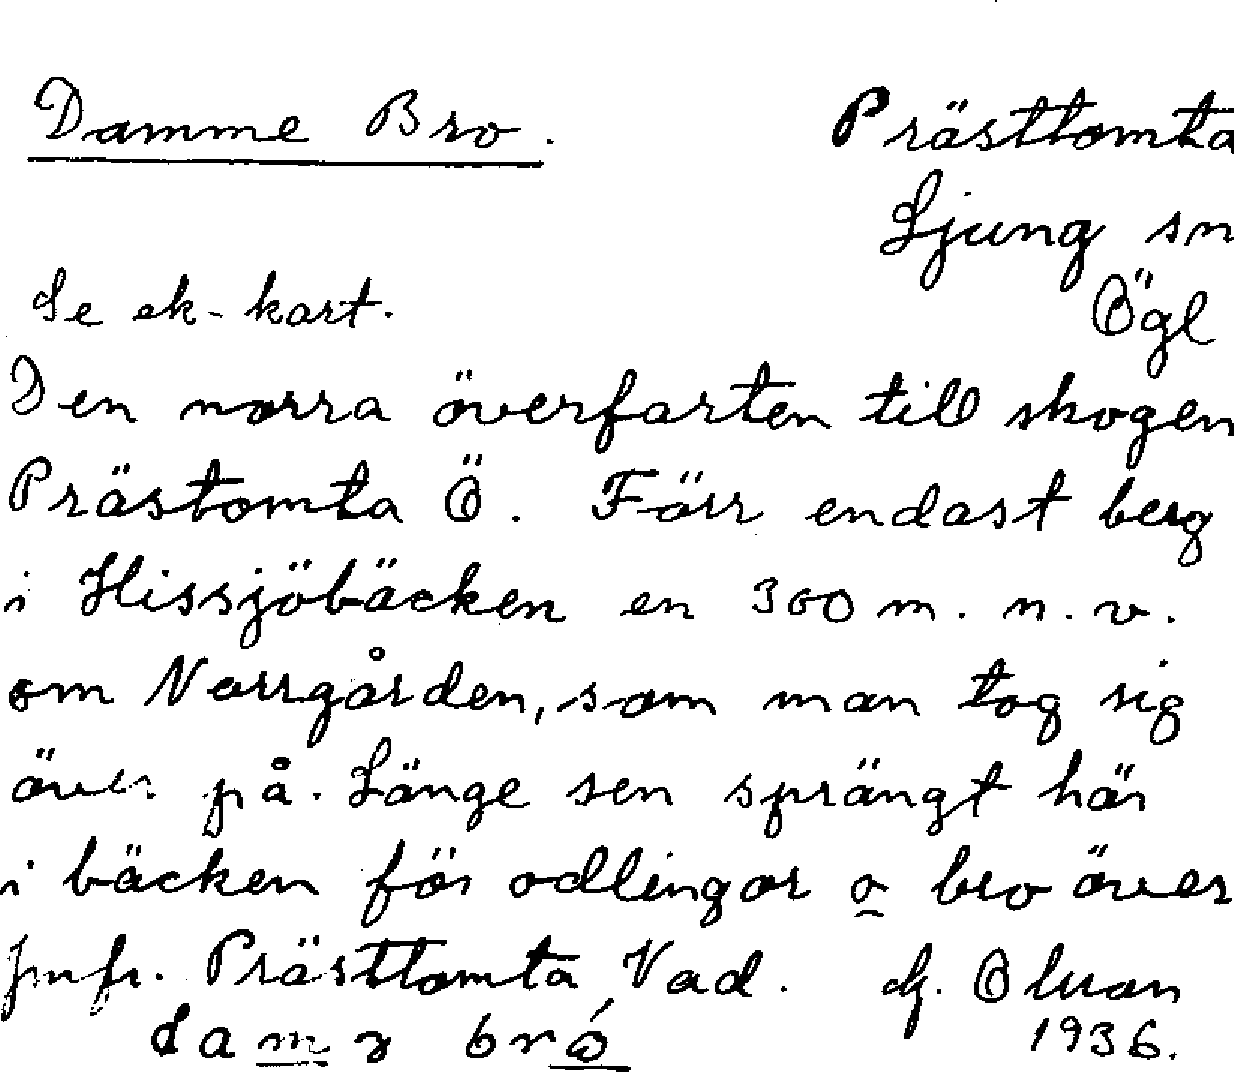 Damme Bro.
Prästtomta
Ljung sn
Ögl
Se ek-kart.
Den norra överfarten till skogen
Prästomta Ö. Förr endast berg
i Hissjöbäcken en 300 m. n. v.
om Norrgården, som man tog sig
över på. Länge sen sprängt här
i bäcken för odlingar o bro över
Jmfr. Prästtomta Vad. G.
1936.